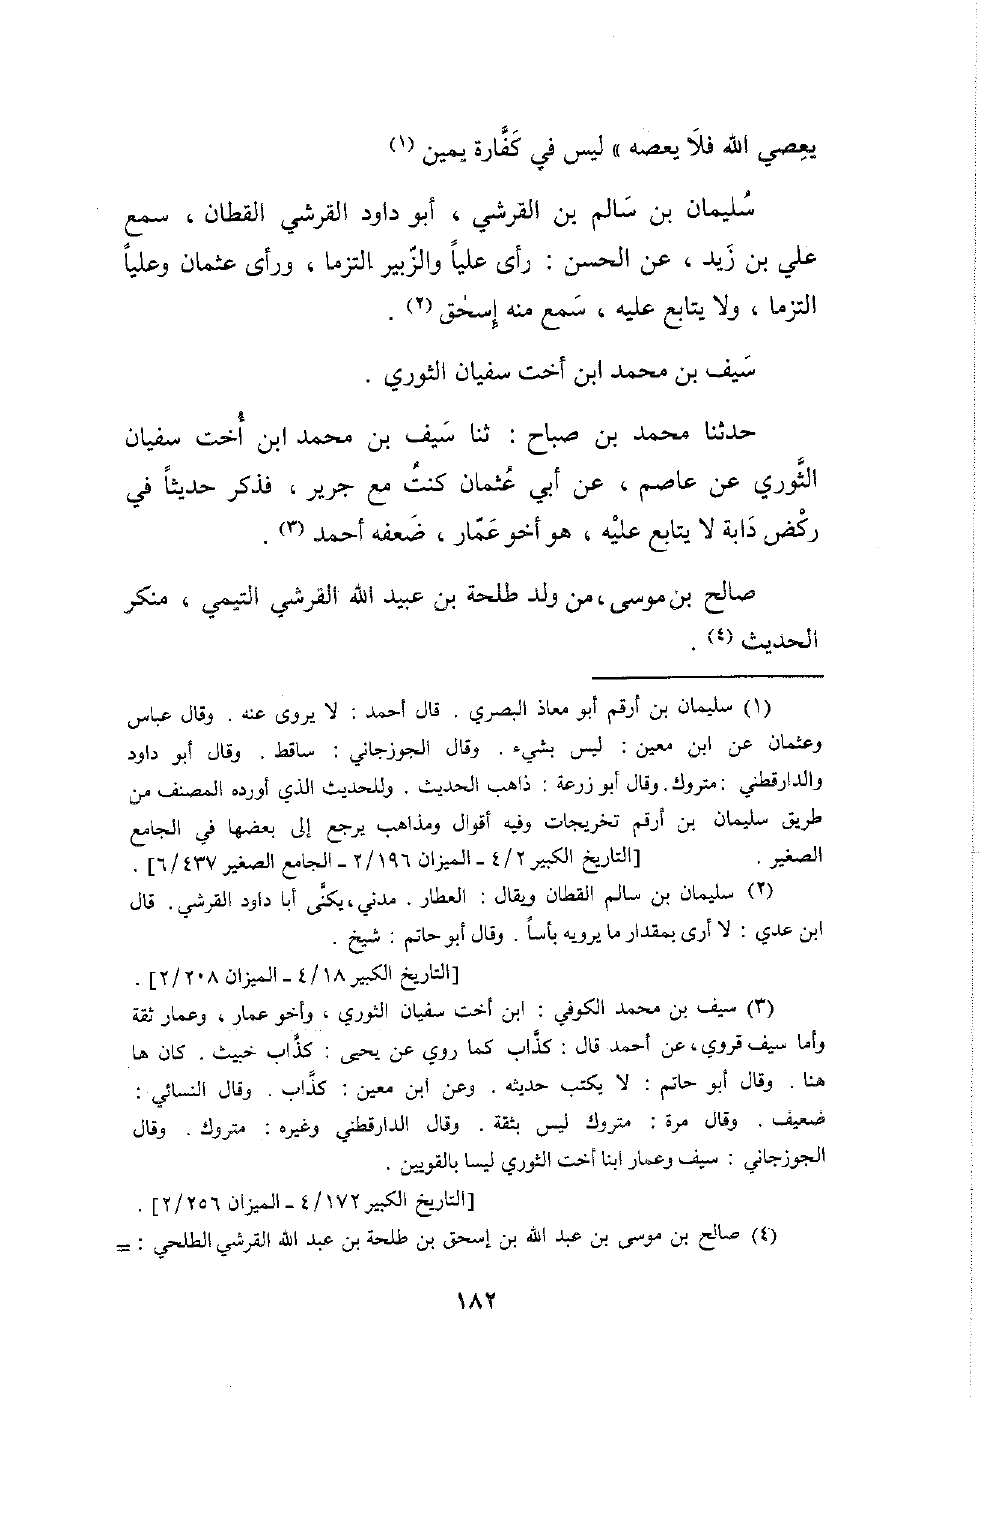 يعِصي الله فلَا يعصه » ليس في كَفَّارة يمين (١)
سُليمان بن سَالم بن القرشي ، أبو داود القرشي القطان ، سمع
علي بن زَيد ، عن الحسن : رأى علياً والزّبير التزما ، ورأى عثمان وعلياً
التزما ، ولا يتابع عليه ، سَمع منه إِسحٰق (٢) .
سَيف بن محمد ابن أخت سفيان الثوري .
حدثنا محمد بن صباح : ثنا سَيف بن محمد ابن أُخت سفيان
الثَّوري عن عاصم ، عن أبي عُثمان كنتُ مع جرير ، فذكر حديثاً في
ركْض دَابة لا يتابع عليْه ، هو أخو عَمّار ، ضَعفه أحمد (٣) .
صالح بن موسى ، من ولد طلحة بن عبيد الله القرشي التيمي ، منكر
الحديث (٤) .
(١) سليمان بن أرقم أبو معاذ البصري . قال أحمد : لا يروى عنه . وقال عباس
وعثمان عن ابن معين : ليس بشيء . وقال الجوزجاني : ساقط . وقال أبو داود
والدارقطني : متروك . وقال أبو زرعة : ذاهب الحديث . وللحديث الذي أورده المصنف من
طريق سليمان بن أرقم تخريجات وفيه أقوال ومذاهب يرجع إلى بعضها في الجامع
الصغير . [التاريخ الكبير ٤/٢ ـ الميزان ٢/١٩٦ ـ الجامع الصغير ٦/٤٣٧] .
(٢) سليمان بن سالم القطان ويقال : العطار . مدني ، يكنَّى أبا داود القرشي . قال
ابن عدي : لا أرى بمقدار ما يرويه بأساً . وقال أبو حاتم : شيخ .
[التاريخ الكبير ٤/١٨ ـ الميزان ٢/٢٠٨] .
(٣) سيف بن محمد الكوفي : ابن أخت سفيان الثوري ، وأخو عمار ، وعمار ثقة
وأما سيف قروي ، عن أحمد قال : كذَّاب كما روي عن يحيى : كذَّاب خبيث . كان ها
هنا . وقال أبو حاتم : لا يكتب حديثه . وعن ابن معين : كذَّاب . وقال النسائي :
ضعيف . وقال مرة : متروك ليس بثقة . وقال الدارقطني وغيره : متروك . وقال
الجوزجاني : سيف وعمار ابنا أخت الثوري ليسا بالقويين .
[التاريخ الكبير ٤/١٧٢ ـ الميزان ٢/٢٥٦] .
(٤) صالح بن موسى بن عبد الله بن إسحق بن طلحة بن عبد الله القرشي الطلحي : =
١٨٢